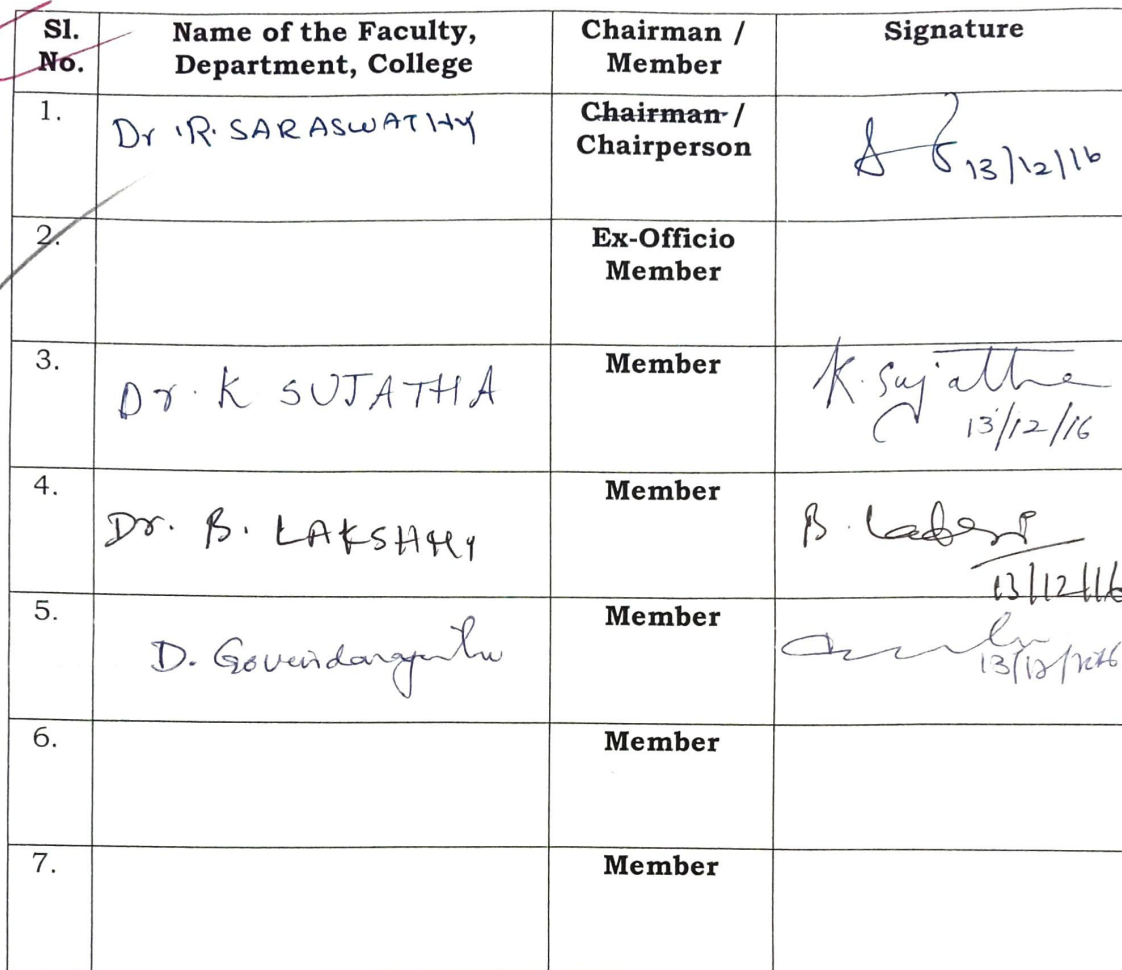 Sl. No. Name of the Faculty, Department, College Chairman / Member Signature
1. Dr. R. SARASWATHY Chairman / Chairperson 13/12/16
2. Ex-Officio Member
3. Dr. K SUJATHA Member K. Sujatha 13/12/16
4. Dr. B. LAKSHMI Member B. 13/12/16
5. D. Govindarajulu Member 13/12/2016
6. Member
7. Member